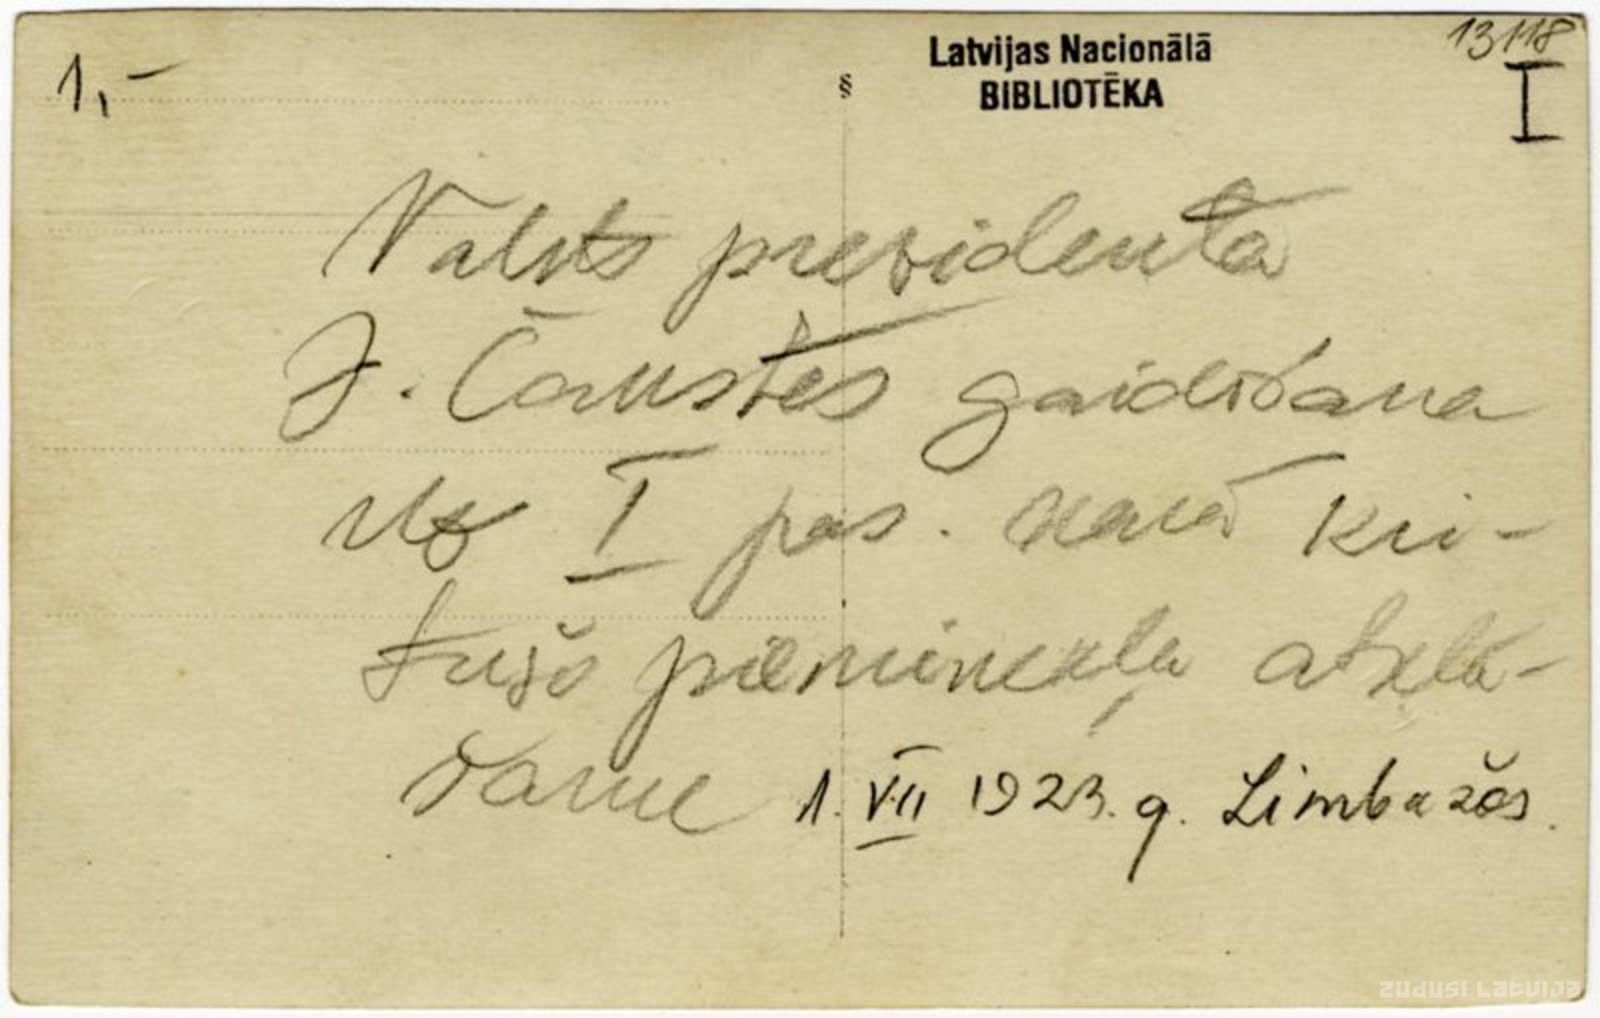 1,-
Latvijas Nacionālā
BIBLIOTĒKA
13118
I
§
Valsts prezidenta
J. Čakstes gaidīšana
uz I pas. karā kri-
tušo pieminekļa atklā-
šanu 1. VII 1923. g. Limbažos.
ZUDUSI LATVIJA